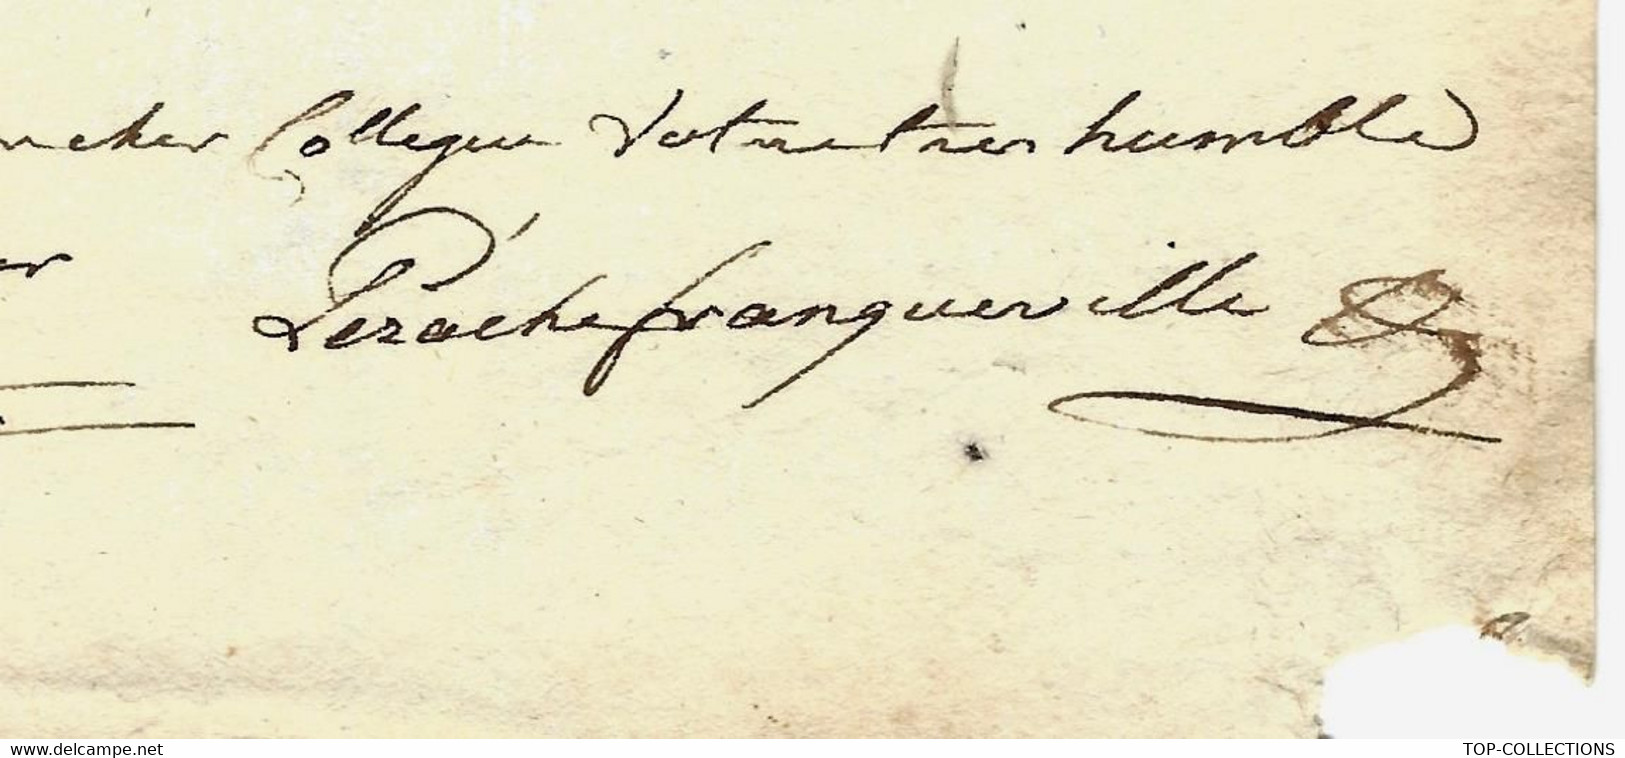 mcher Collegue Votre tres humble
er
Pérache franqueville
www.delcampe.net TOP-COLLECTIONS